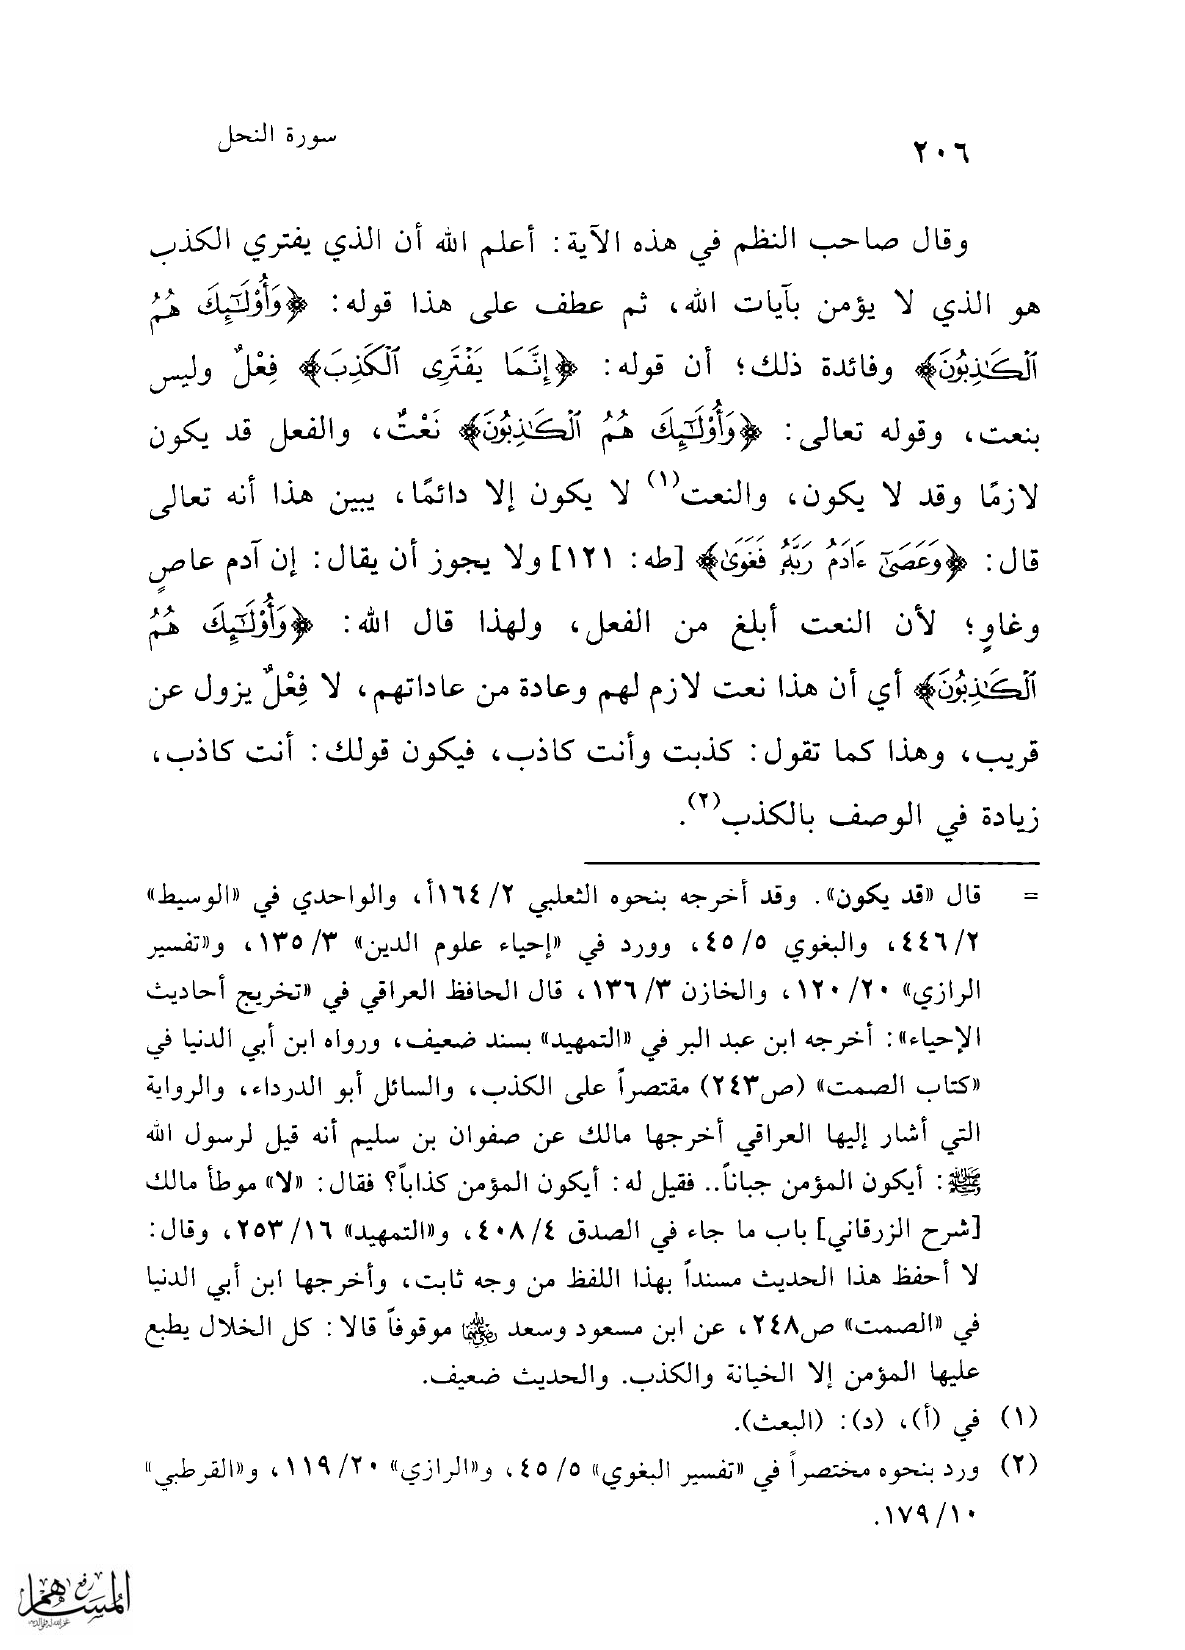 ٢٠٦ سورة النحل
وقال صاحب النظم في هذه الآية: أعلم الله أن الذي يفتري الكذب
هو الذي لا يؤمن بآيات الله، ثم عطف على هذا قوله: ﴿وَأُوْلَـٰٓئِكَ هُمُ
ٱلْكَـٰذِبُونَ﴾ وفائدة ذلك؛ أن قوله: ﴿إِنَّمَا يَفْتَرِى ٱلْكَذِبَ﴾ فِعْلٌ وليس
بنعت، وقوله تعالى: ﴿وَأُوْلَـٰٓئِكَ هُمُ ٱلْكَـٰذِبُونَ﴾ نَعْتٌ، والفعل قد يكون
لازمًا وقد لا يكون، والنعت(١) لا يكون إلا دائمًا، يبين هذا أنه تعالى
قال: ﴿وَعَصَىٰٓ ءَادَمُ رَبَّهُۥ فَغَوَىٰ﴾ [طه: ١٢١] ولا يجوز أن يقال: إن آدم عاصٍ
وغاوٍ؛ لأن النعت أبلغ من الفعل، ولهذا قال الله: ﴿وَأُوْلَـٰٓئِكَ هُمُ
ٱلْكَـٰذِبُونَ﴾ أي أن هذا نعت لازم لهم وعادة من عاداتهم، لا فِعْلٌ يزول عن
قريب، وهذا كما تقول: كذبت وأنت كاذب، فيكون قولك: أنت كاذب،
زيادة في الوصف بالكذب(٢).
= قال «قد يكون». وقد أخرجه بنحوه الثعلبي ٢/ ١٦٤أ، والواحدي في «الوسيط»
٢/ ٤٤٦، والبغوي ٥/ ٤٥، وورد في «إحياء علوم الدين» ٣/ ١٣٥، و«تفسير
الرازي» ٢٠/ ١٢٠، والخازن ٣/ ١٣٦، قال الحافظ العراقي في «تخريج أحاديث
الإحياء»: أخرجه ابن عبد البر في «التمهيد» بسند ضعيف، ورواه ابن أبي الدنيا في
«كتاب الصمت» (ص٢٤٣) مقتصراً على الكذب، والسائل أبو الدرداء، والرواية
التي أشار إليها العراقي أخرجها مالك عن صفوان بن سليم أنه قيل لرسول الله
ﷺ: أيكون المؤمن جباناً.. فقيل له: أيكون المؤمن كذاباً؟ فقال: «لا» موطأ مالك
[شرح الزرقاني] باب ما جاء في الصدق ٤/ ٤٠٨، و«التمهيد» ١٦/ ٢٥٣، وقال:
لا أحفظ هذا الحديث مسنداً بهذا اللفظ من وجه ثابت، وأخرجها ابن أبي الدنيا
في «الصمت» ص٢٤٨، عن ابن مسعود وسعد رضي الله عنهما موقوفاً قالا: كل الخلال يطبع
عليها المؤمن إلا الخيانة والكذب. والحديث ضعيف.
(١) في (أ)، (د): (البعث).
(٢) ورد بنحوه مختصراً في «تفسير البغوي» ٥/ ٤٥، و«الرازي» ٢٠/ ١١٩، و«القرطبي»
١٠/ ١٧٩.